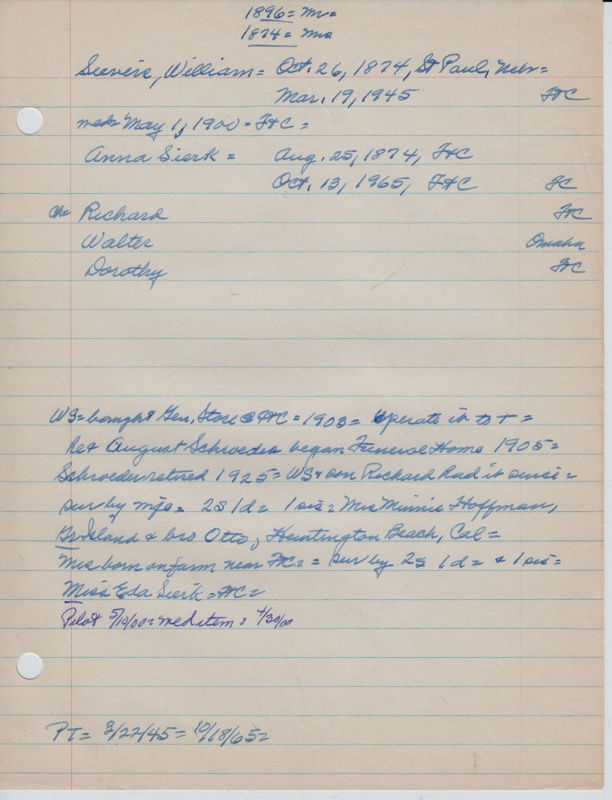 1896 = Mr =
1874 = Mrs
Sievers, William = Oct. 26, 1874, St Paul, Nebr =
Mar. 19, 1945 FtC
med = May 1, 1900 = FtC =
Anna Sierk = Aug. 25, 1874, FtC
Oct. 13, 1965, FtC FC
ch Richard FtC
Walter Omaha
Dorothy FtC
WS = bought Gen. Store @ FtC = 1903 = operate it to + =
he & August Schroeder began Funeral Home 1905 =
Schroeder retired 1925 = WS & son Richard had it since =
sur by mfs = 2s 1d = 1 sis = Mrs Minnie Hoffman,
Gr Island & bro Otto, Huntington Beach, Cal =
Mrs born on farm near FtC = = sur by 2s 1d = & 1 sis =
Miss Eda Sierk = FtC =
Pilot 5/10/00 = med item = 4/30/00
PT = 3/22/45 = 10/18/65 =